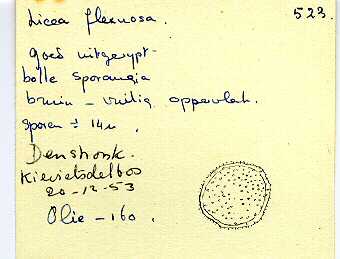 Licea flexuosa. 523.
goed uitgerypt-
bolle sporangia
bruin - vuilig oppervlak.
sporen ± 14µ.
Denshonk.
Kievietsdelbos
20-12-53
Olie - 160.